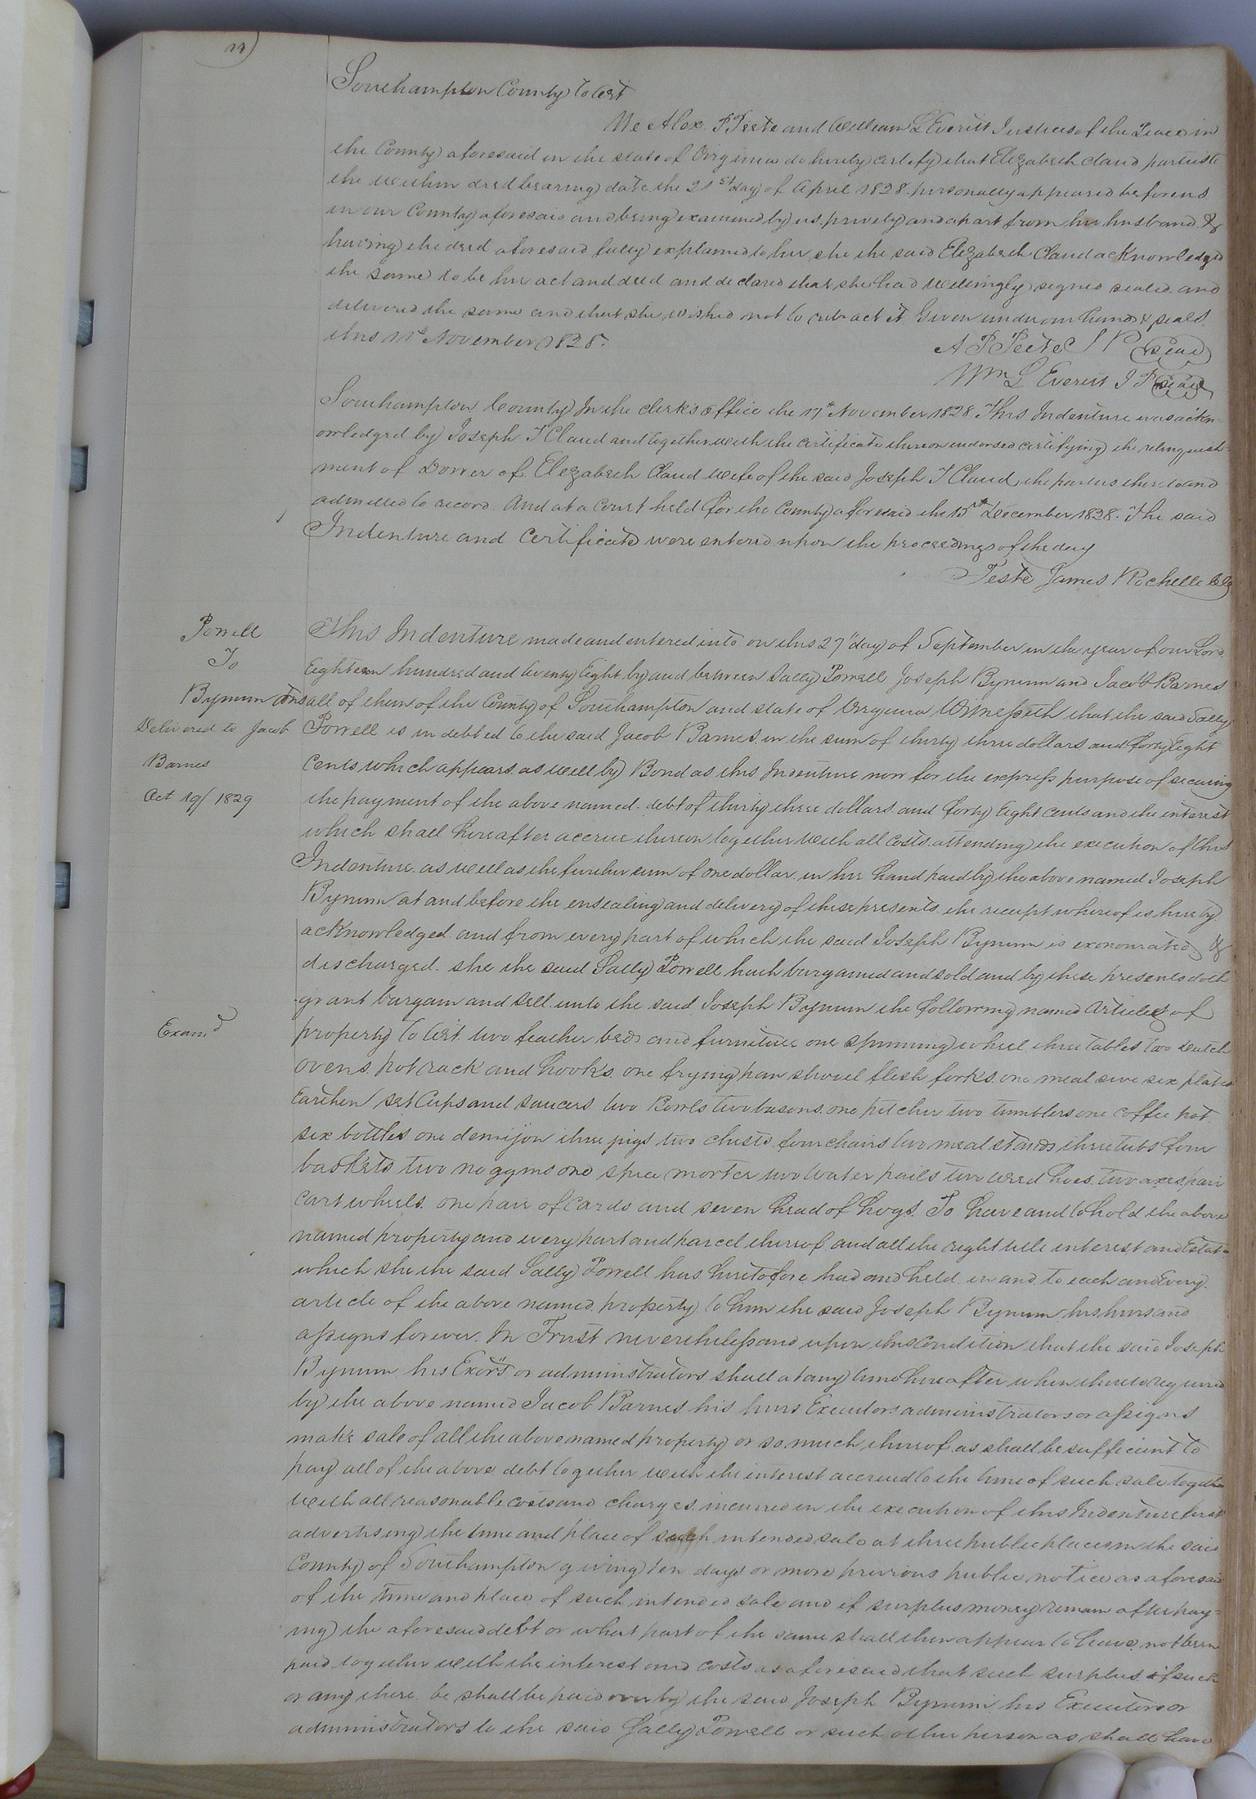 Southampton County to wit
We Alex. P Peete and William L Everitt Justices of the Peace in
the County aforesaid in the state of Virginia do hereby certify that Elizabeth Claud parties to
the within deed bearing date the 21st day of April 1828 personally appeared before us
in our County aforesaid and being examined by us privily and apart from her husband &
having the deed aforesaid fully explained to her she the said Elizabeth Claud acknowledged
the same to be her act and deed and declared that she had willingly signed sealed and
delivered the same and that she wished not to retract it Given under our hands & seals
this November 1828.
A P Peete J P (Seal)
Wm L Everitt J P (Seal)
Southampton County In the clerks office the 17th November 1828 This Indenture was ackn
owledged by Joseph T Claud and together with the certificate thereon endorsed certifying the relinquish
ment of Dower of Elizabeth Claud wife of the said Joseph T Claud, the parties thereto and
admitted to record. And at a Court held for the County aforesaid the 15th December 1828. The said
Indenture and Certificate were entered upon the proceedings of the day
Teste James Rochelle Clk
Powell
To
Bynum &c
Delivered to Jacob
Barnes
Oct 19/ 1829
This Indenture made and entered into on this 27th day of September in the year of our Lord
Eighteen hundred and twenty Eight by and between Sally Powell Joseph Bynum and Jacob Barnes
all of them of the County of Southampton and state of Virginia Witnesseth that the said Sally
Powell is indebted to the said Jacob Barnes in the sum of thirty three dollars and forty Eight
Cents which appears as well by Bond as this Indenture now for the express purpose of securing
the payment of the above named debt of thirty three dollars and forty Eight cents and the interest
which shall hereafter accrue thereon together with all costs attending the execution of this
Indenture as well as the further sum of one dollar in her hand paid by the above named Joseph
Bynum at and before the ensealing and delivery of these presents the receipt whereof is hereby
acknowledged and from every part of which the said Joseph Bynum is exonourated &
discharged. she the said Sally Powell hath bargained and sold and by these presents doth
grant bargain and sell unto the said Joseph Bynum the following named articles of
Exam'd
property to wit. two feather beds and furniture one spinning wheel three tables two dutch
ovens, pot rack and hooks. one frying pan shovel flesh forks. one meal sive six plates
Earthen set Cups and saucers two Bowls two basons. one pitcher two tumblers one coffee pot
six bottles one demijon three pigs two chests four chairs two meal stands three tubs four
baskets two noggins one spice morter two water pails two weed hoes. two axes pair
Cart wheels. one pair of Cards and seven head of hogs. To have and to hold the above
named property and every part and parcel thereof and all the right title interest and Estate
which she the said Sally Powell has heretofore had and held in and to each and Every
article of the above named property to him the said Joseph Bynum his heirs and
assigns forever. In Trust nevertheless and upon this condition that the said Joseph
Bynum his Exors or administrators shall at any time hereafter when thereto required
by the above named Jacob Barnes his heirs Executors administrators or assigns
make sale of all the above named property or so much thereof as shall be sufficient to
pay all of the above debt together with the interest accrued to the time of such sale together
with all reasonable costs and charges incurred in the execution of this Indenture first
advertising the time and place of such intended sale at three public places in the said
County of Southampton giving ten days or more previous public notice as aforesaid
of the time and place of such intended sale and if surplus money remain after pay-
ing the aforesaid debt or what part of the same shall then appear to have not been
paid together with the interest and costs as aforesaid that such surplus if such
or any there be shall be paid over by the said Joseph Bynum his Executors or
administrators to the said Sally Powell or such other person as shall have